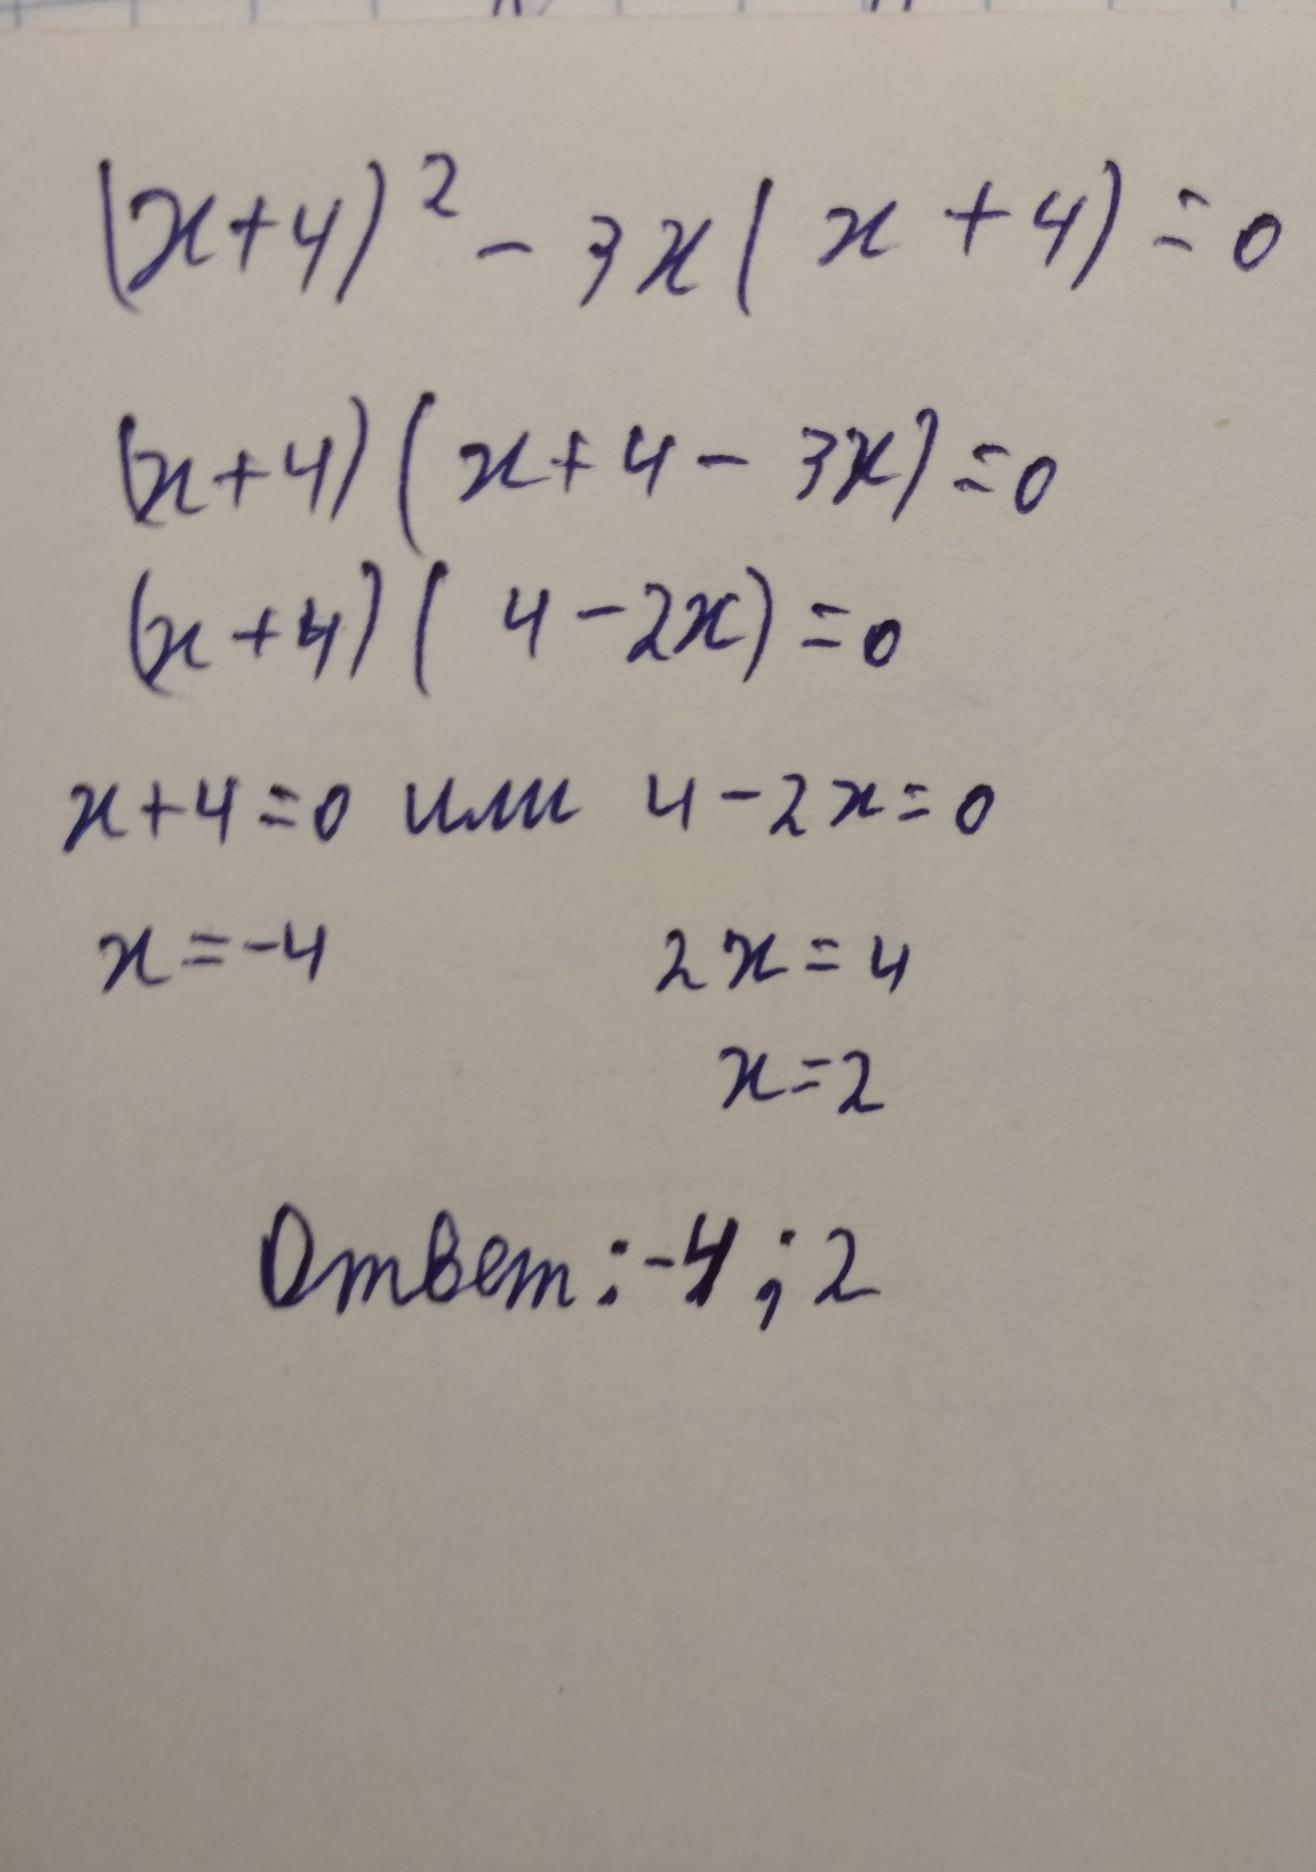 (x+4)² - 3x(x+4)=0
(x+4)(x+4-3x)=0
(x+4)(4-2x)=0
x+4=0 или 4-2x=0
x=-4 2x=4
x=2
Ответ:-4;2